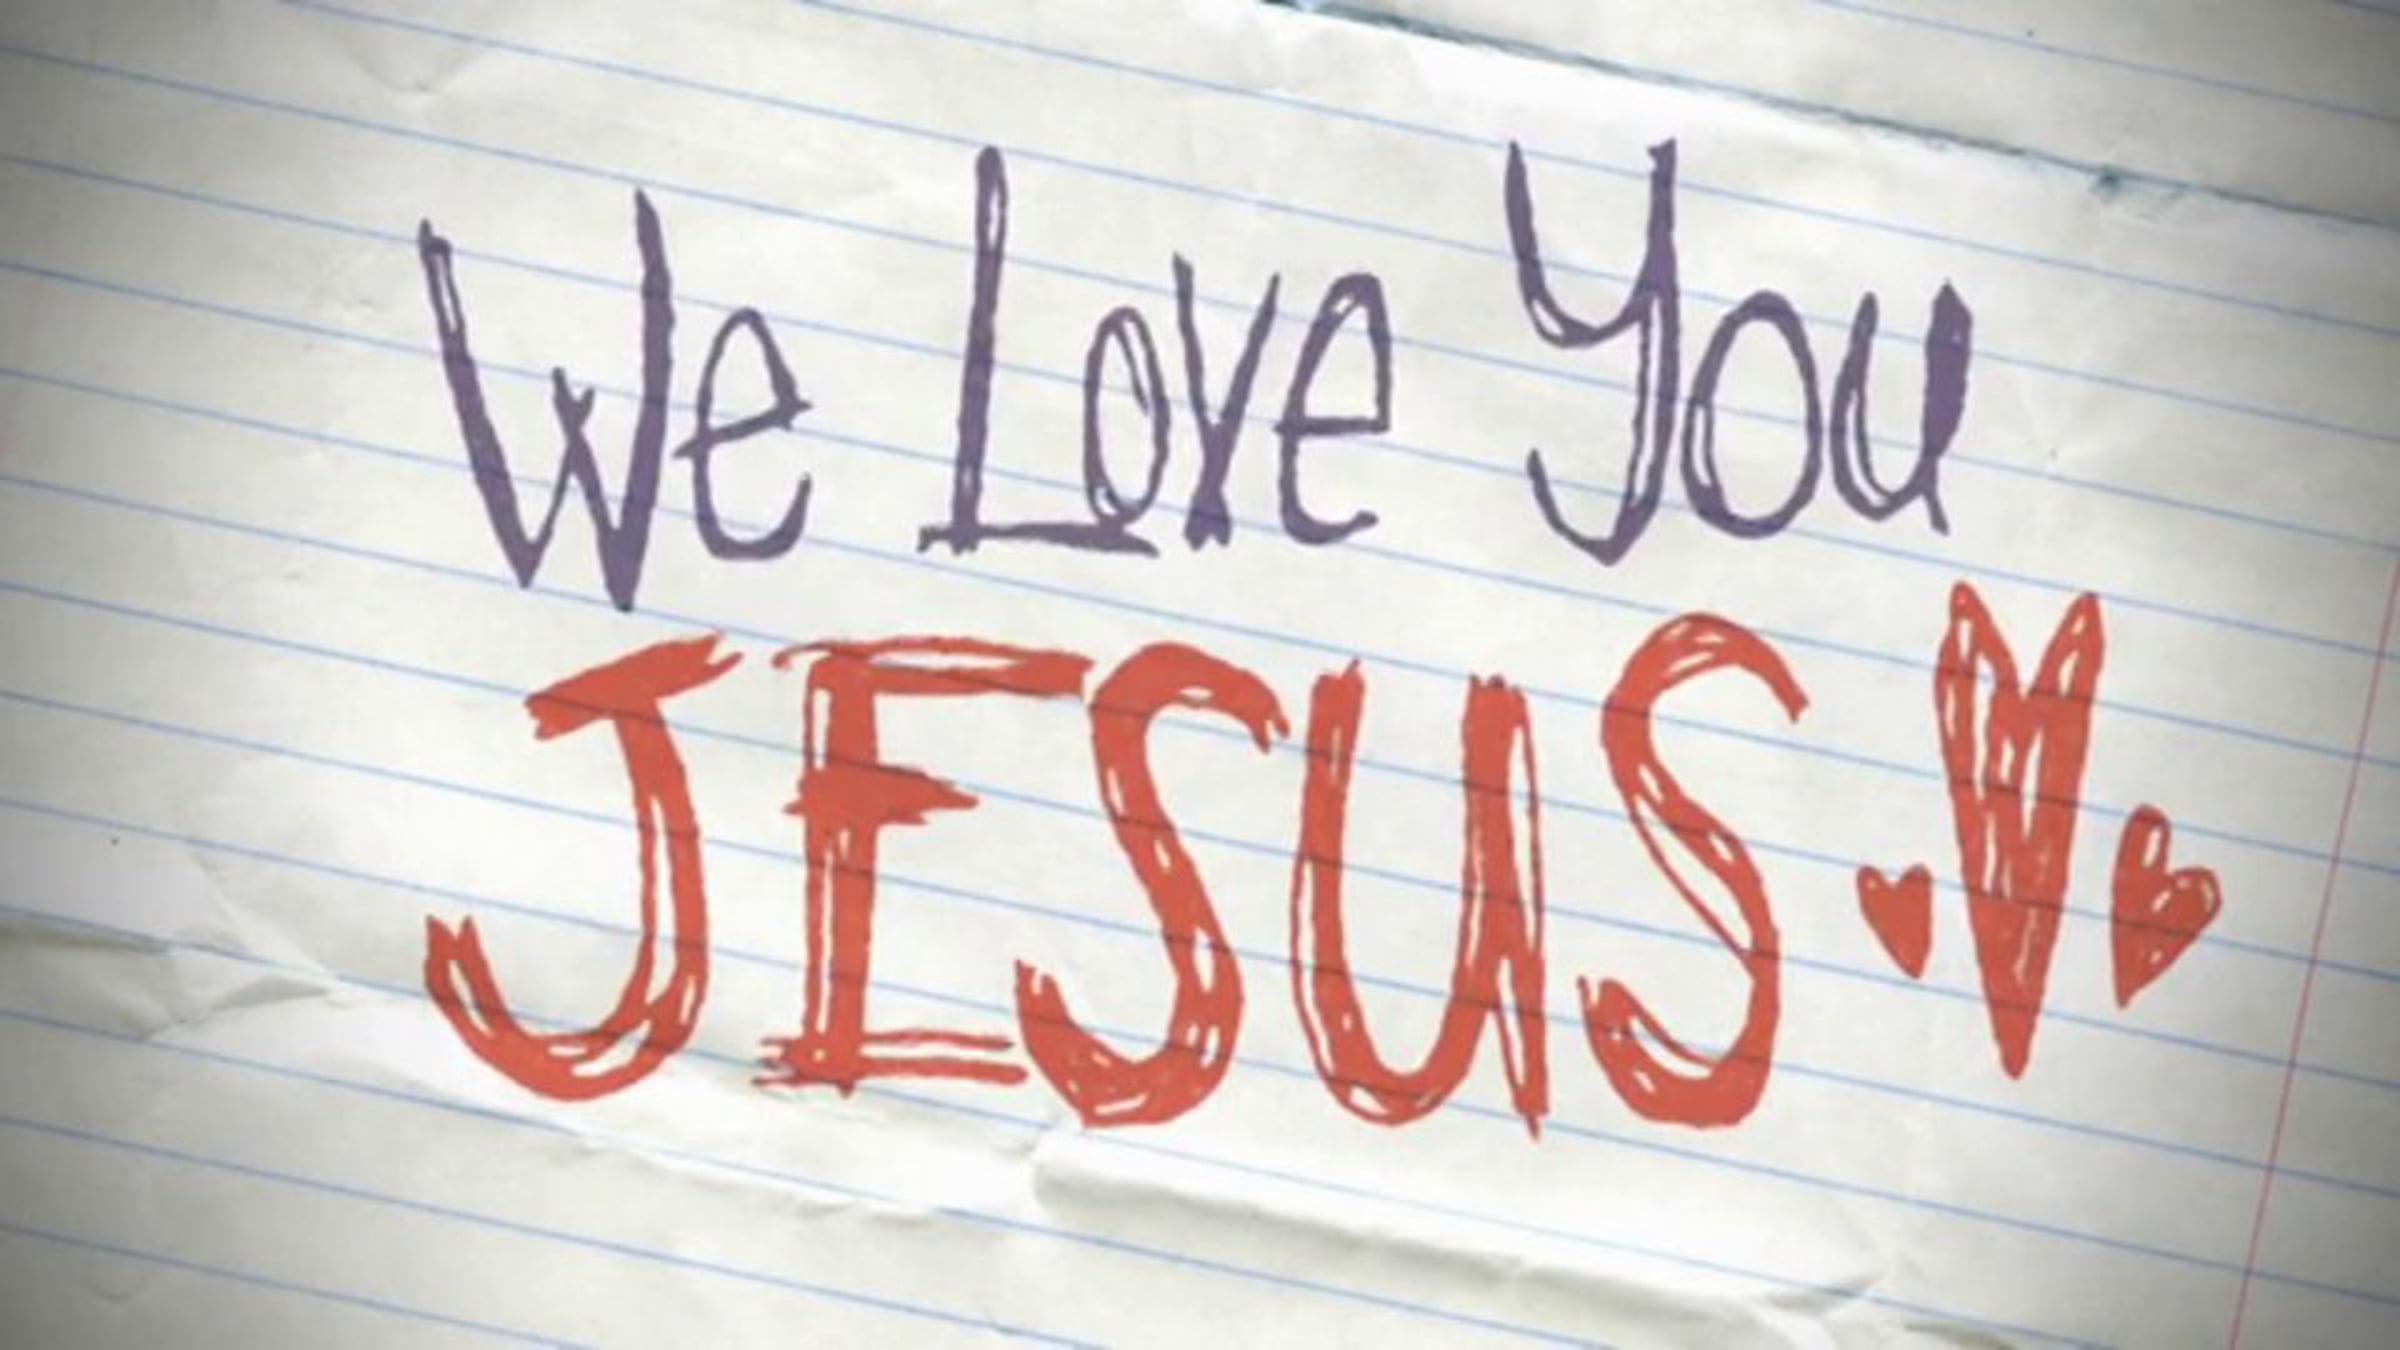 We Love You
JESUS